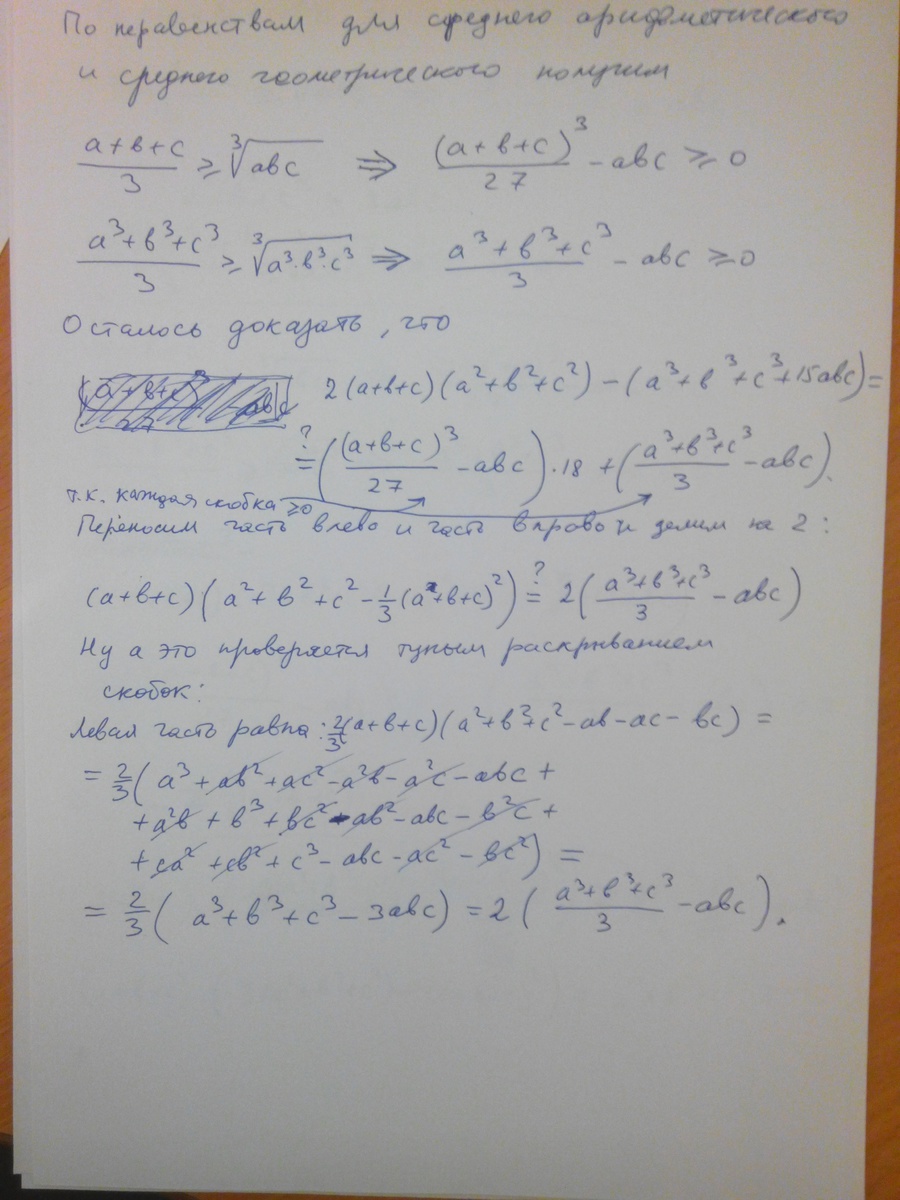 По неравенствам для среднего арифметического
и среднего геометрического получим
(a+b+c)/3 ≥ ∛(abc) ⇒ (a+b+c)³/27 - abc ≥ 0
(a³+b³+c³)/3 ≥ ∛(a³·b³·c³) ⇒ (a³+b³+c³)/3 - abc ≥ 0
Осталось доказать, что
2(a+b+c)(a²+b²+c²) - (a³+b³+c³+15abc) =
≟ ((a+b+c)³/27 - abc)·18 + ((a³+b³+c³)/3 - abc).
т.к. каждая скобка ≥0
Переносим часть влево и часть вправо и делим на 2:
(a+b+c)(a²+b²+c² - 1/3(a+b+c)²) ≟ 2((a³+b³+c³)/3 - abc)
Ну а это проверяется тупым раскрыванием
скобок:
Левая часть равна: 2/3(a+b+c)(a²+b²+c²-ab-ac-bc) =
= 2/3(a³+ab²+ac²-a²b-a²c-abc+
+a²b+b³+bc²-ab²-abc-b²c+
+ca²+cb²+c³-abc-ac²-bc²) =
= 2/3(a³+b³+c³-3abc) = 2((a³+b³+c³)/3 - abc).